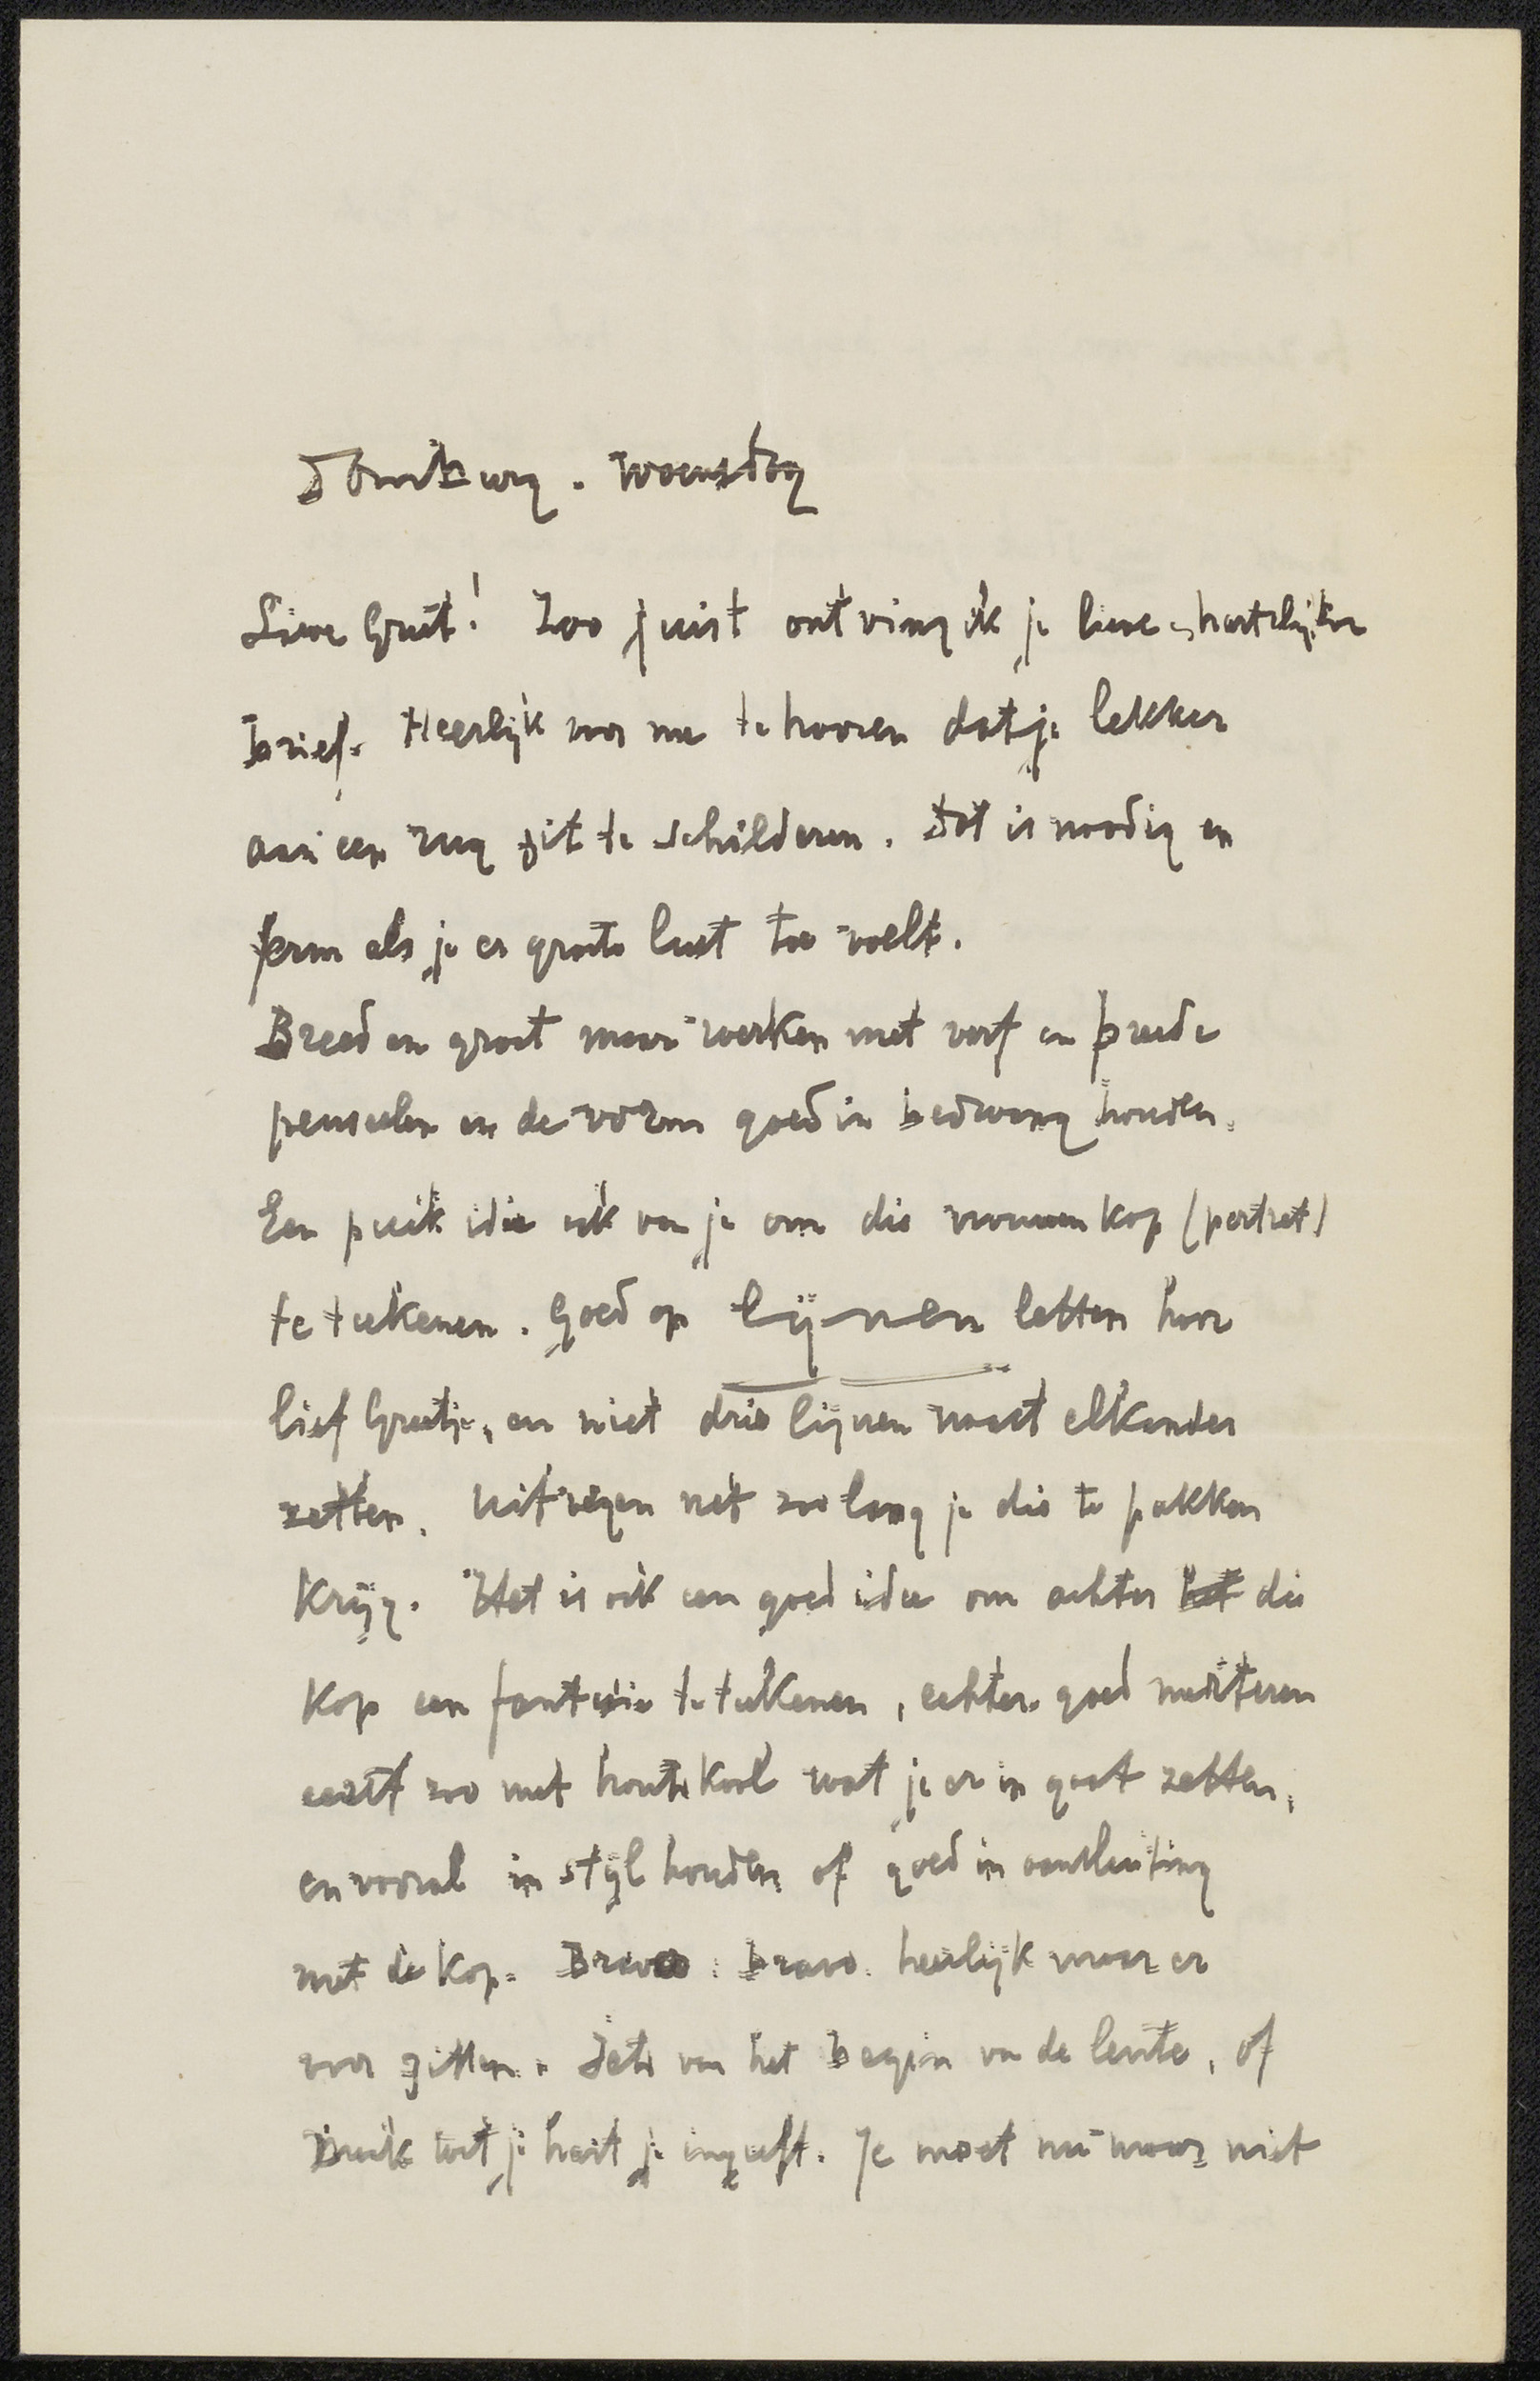 Domburg. Woensdag
Lieve Greet! Zoo juist ontving ik je lieve hartelijke
brief. Heerlijk voor me te hooren dat je lekker
aan een rug zit te schilderen. Dat is noodig en
ferm als je er groote lust toe voelt.
Breed en groot maar werken met verf en breede
penseelen en de vorm goed in bedwang houden.
Een puik idee ook van je om die vrouwenkop (portret)
te teekenen. Goed op lijnen letten hoor
lief Greetje, en niet drie lijnen naast elkander
zetten. Uitvegen net zoolang je die te pakken
krijg. Het is ook een goed idee om achter het die
kop een fantesie te teekenen, echter goed
eerst zoo met houtskool wat je er in gaat zetten,
en vooral in stijl houden of goed in aansluiting
met de kop. Bravoo. bravo. heerlijk maar er
voor zitten. Iets van het begin van de lente, of
Druk wat je hart je ingeeft. Je moet nu maar niet